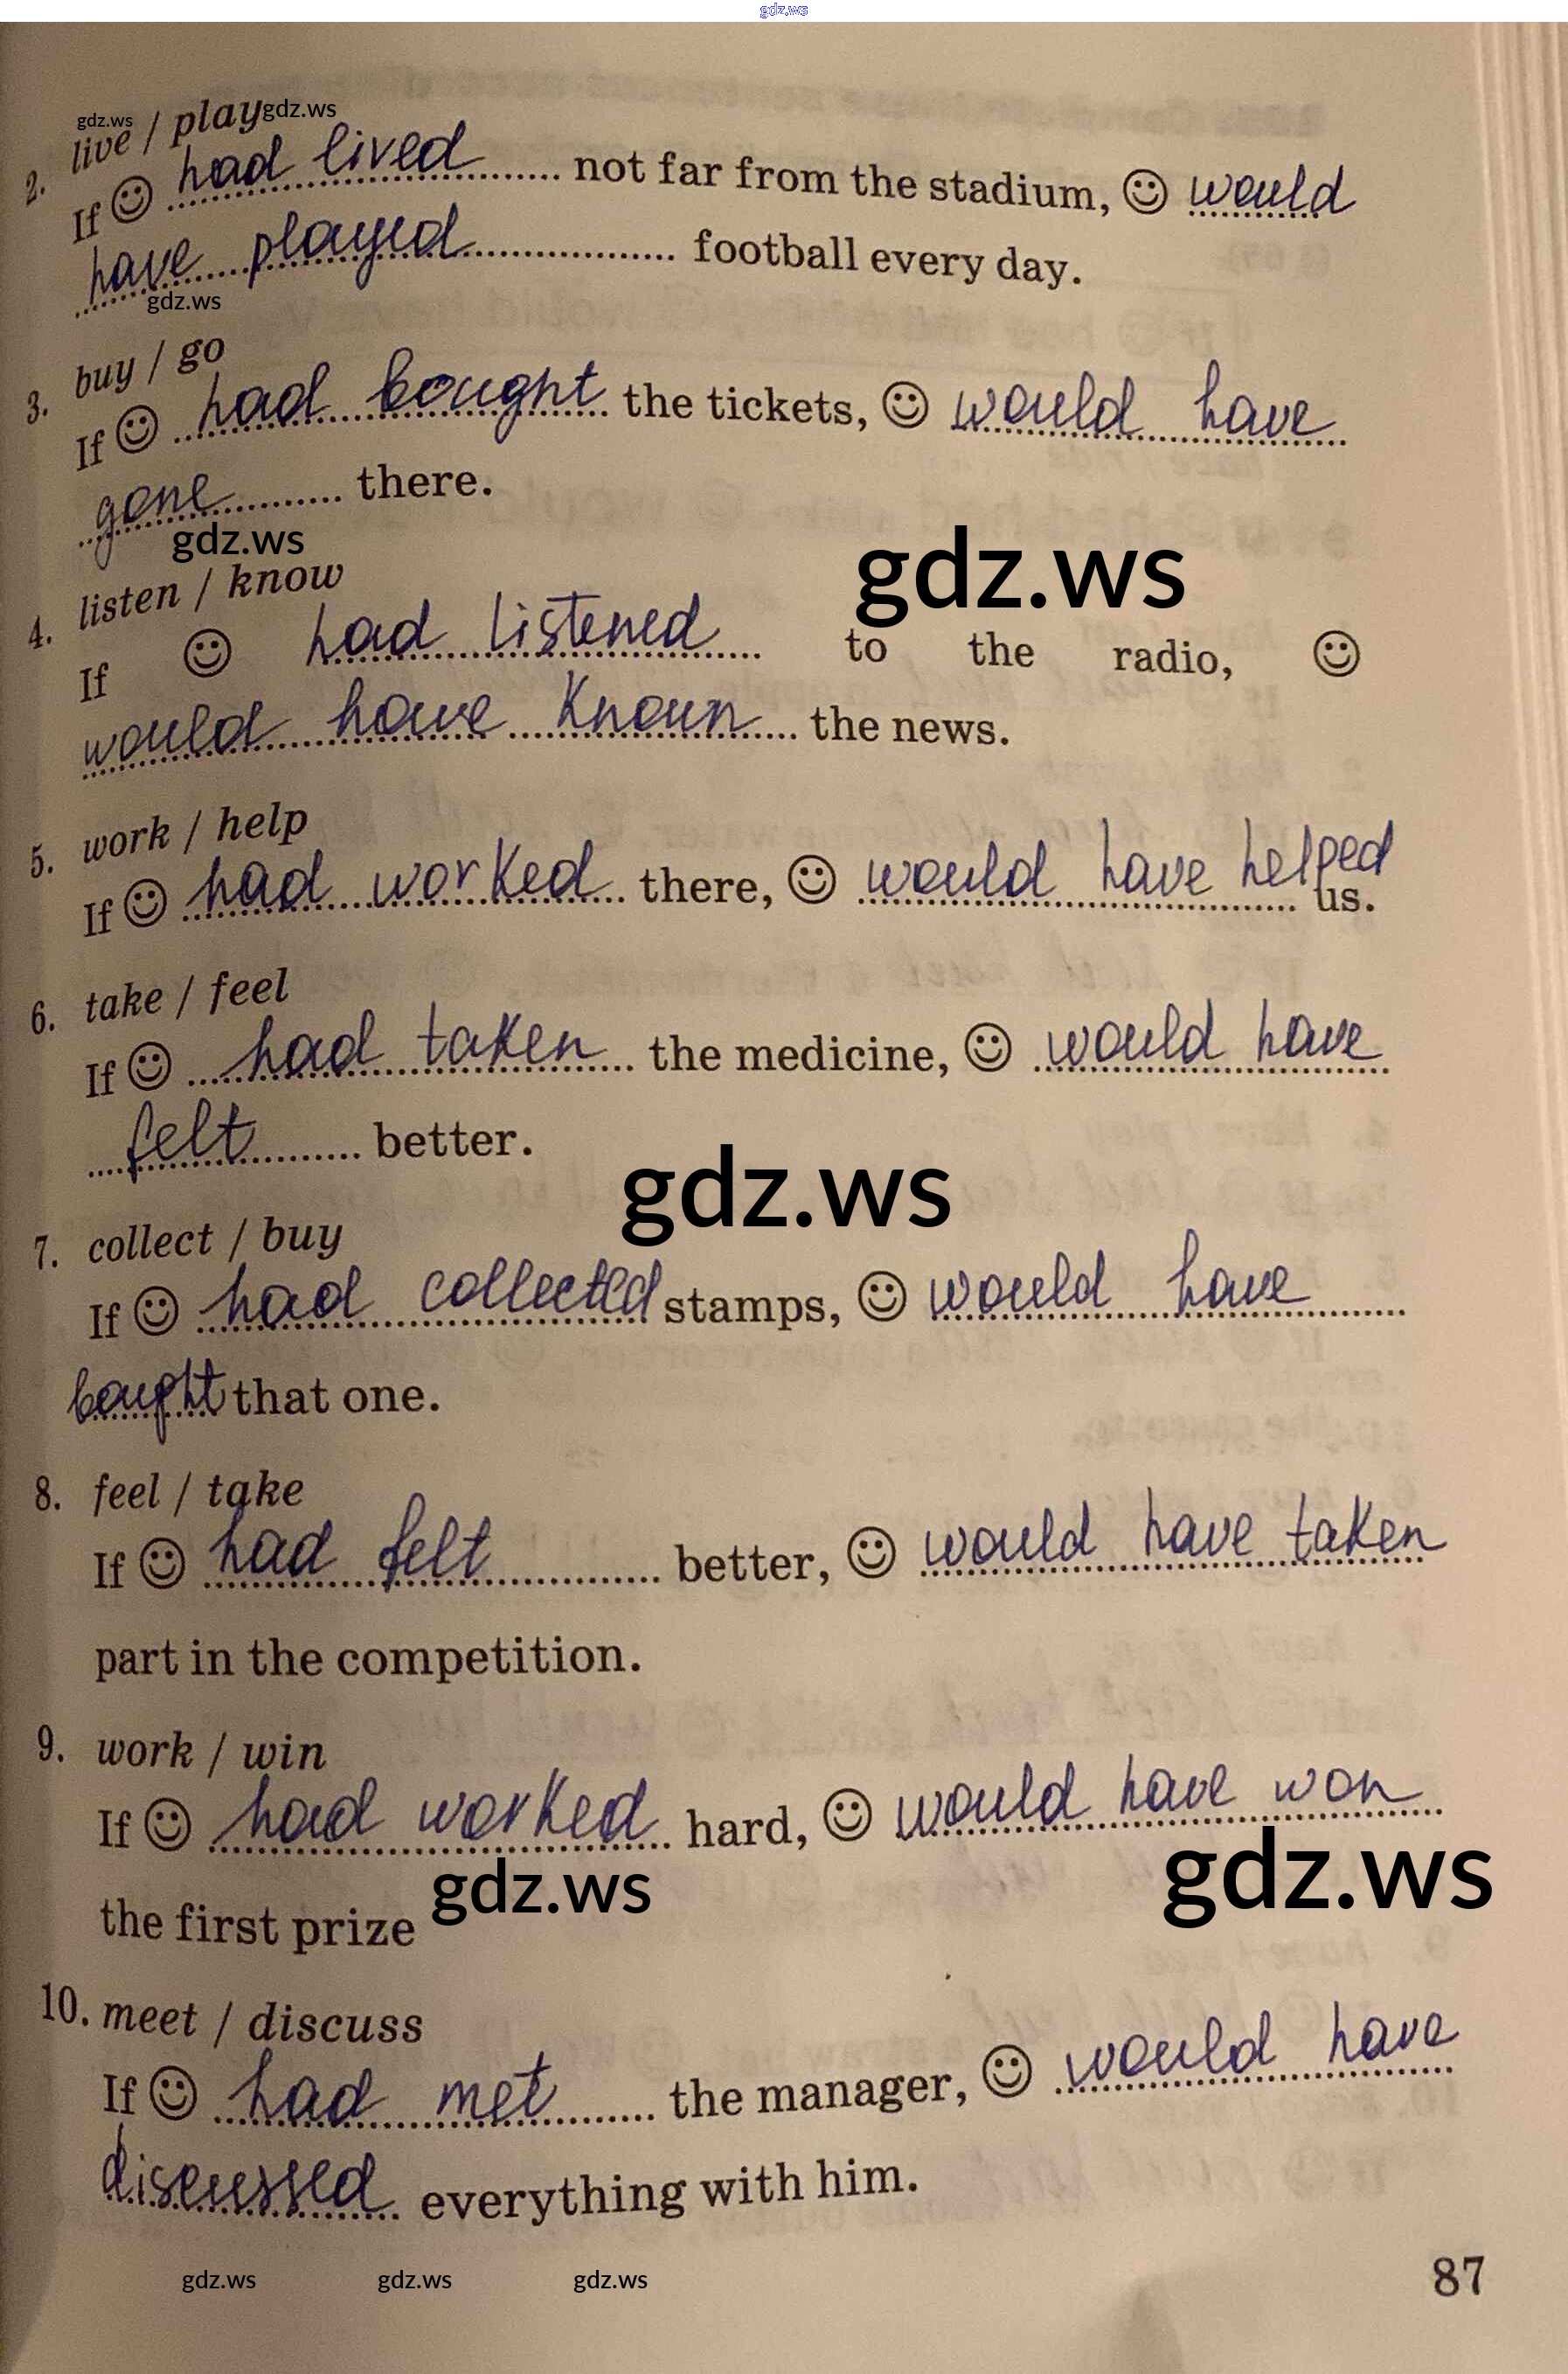 gdz.ws
gdz.ws
gdz.ws
2. live / play
If ☺ had lived not far from the stadium, ☺ would
have played football every day.
gdz.ws
3. buy / go
If ☺ had bought the tickets, ☺ would have
gone there.
gdz.ws
gdz.ws
4. listen / know
If ☺ had listened to the radio, ☺
would have known the news.
5. work / help
If ☺ had worked there, ☺ would have helped us.
6. take / feel
If ☺ had taken the medicine, ☺ would have
felt better.
gdz.ws
7. collect / buy
If ☺ had collected stamps, ☺ would have
bought that one.
8. feel / take
If ☺ had felt better, ☺ would have taken
part in the competition.
9. work / win
If ☺ had worked hard, ☺ would have won
the first prize
gdz.ws
gdz.ws
10. meet / discuss
If ☺ had met the manager, ☺ would have
discussed everything with him.
87
gdz.ws gdz.ws gdz.ws